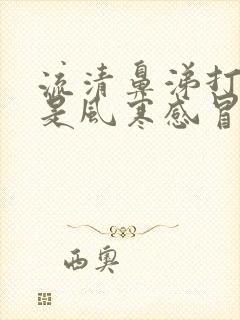 流清鼻涕打
是风寒感冒
西奥